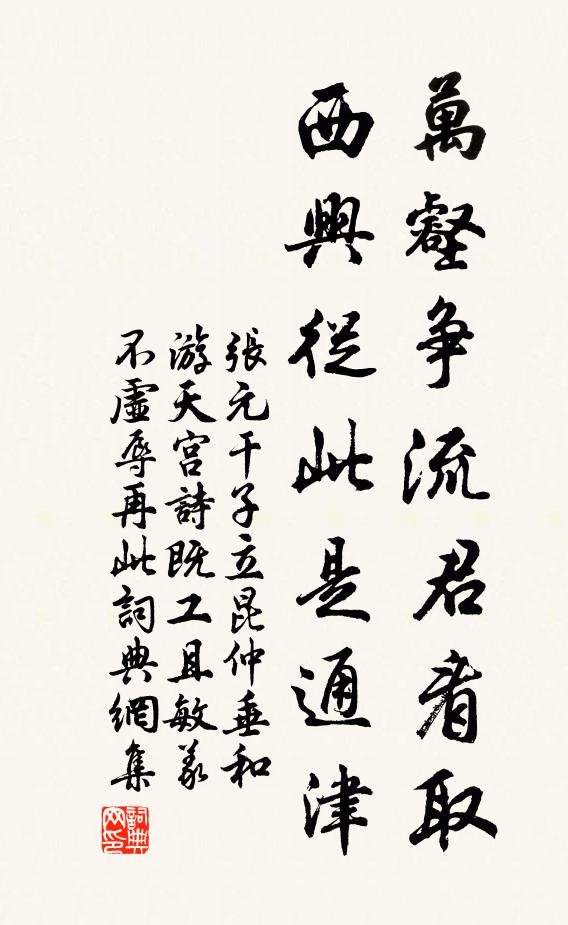 萬壑争流君看取
西興從此是通津
張元干子立昆仲垂和
游天宫詩既工且敏義
不虚辱再此詞典網集
詞典
网印